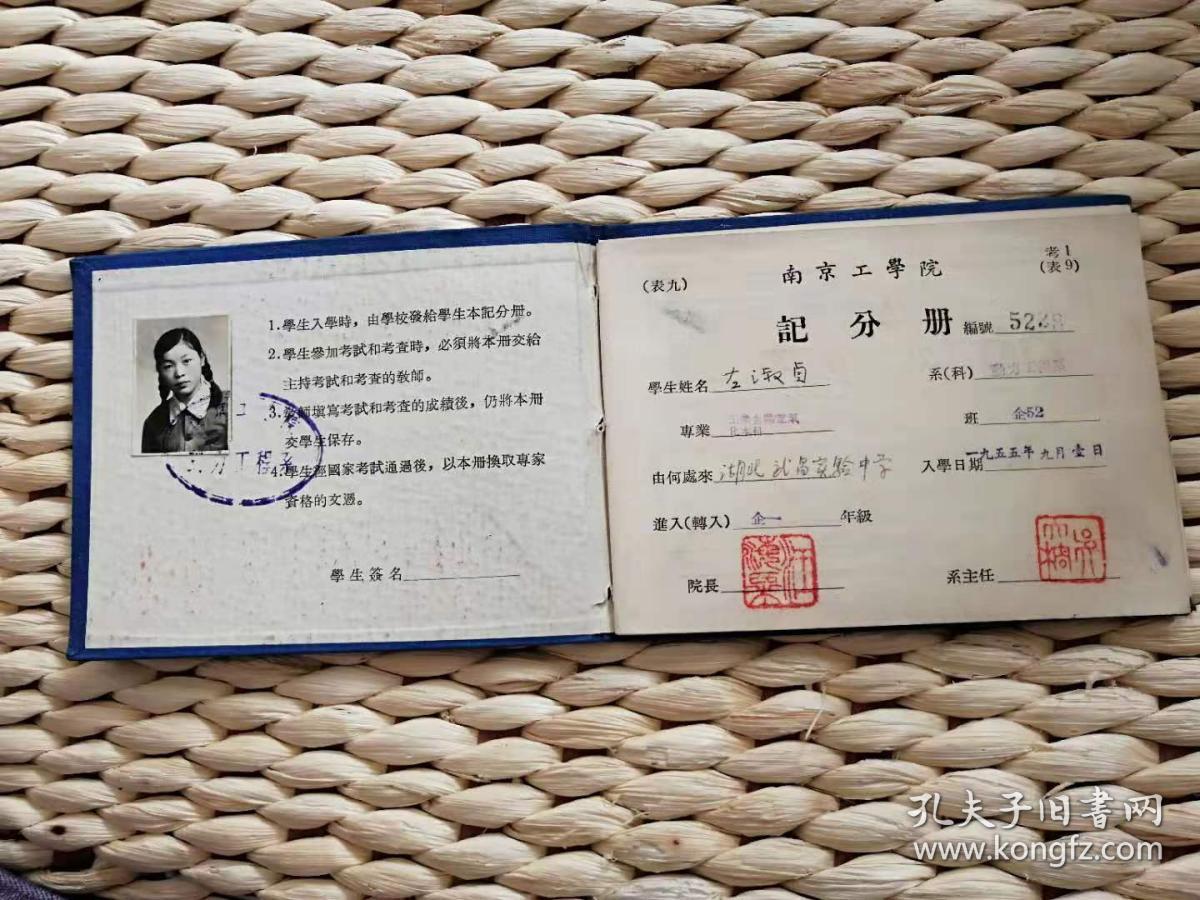 1.學生入學時，由學校發給學生本記分册。
2.學生參加考試和考查時，必須將本册交給
主持考試和考查的敎師。
3.敎師填寫考試和考查的成績後，仍將本册
交學生保存。
4.學生經國家考試通過後，以本册換取專家
資格的文憑。
學生簽名
工程系
考1
(表9)
(表九)
南京工學院
記分册
編號 522
學生姓名 左淑貞
系(科) 動力工程系
專業 工業企業電氣
化本科
班 企52
由何處來 湖北武昌實驗中学
入學日期 一九五五年九月壹日
進入(轉入) 企一 年級
院長 汪海粟
系主任
孔夫子旧書网
www.kongfz.com